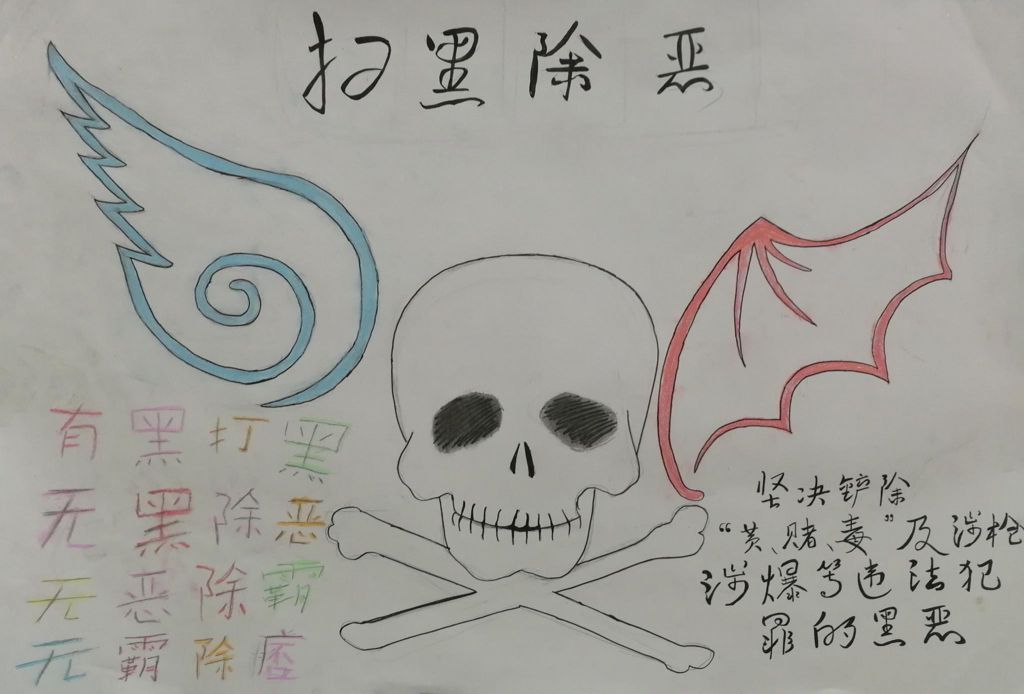 扫黑除恶
有黑打黑
无黑除恶
无恶除霸
无霸除痞
坚决铲除
“黄、赌、毒”及涉枪
涉爆等违法犯
罪的黑恶